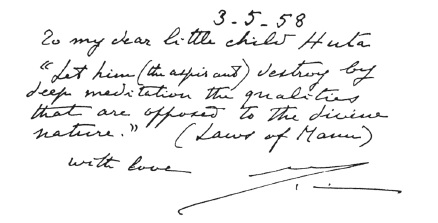 3-5-58
To my dear little child Huta
"Let him (the aspirant) destroy by
deep meditation the qualities
that are opposed to the divine
nature." (Laws of Manu)
with love